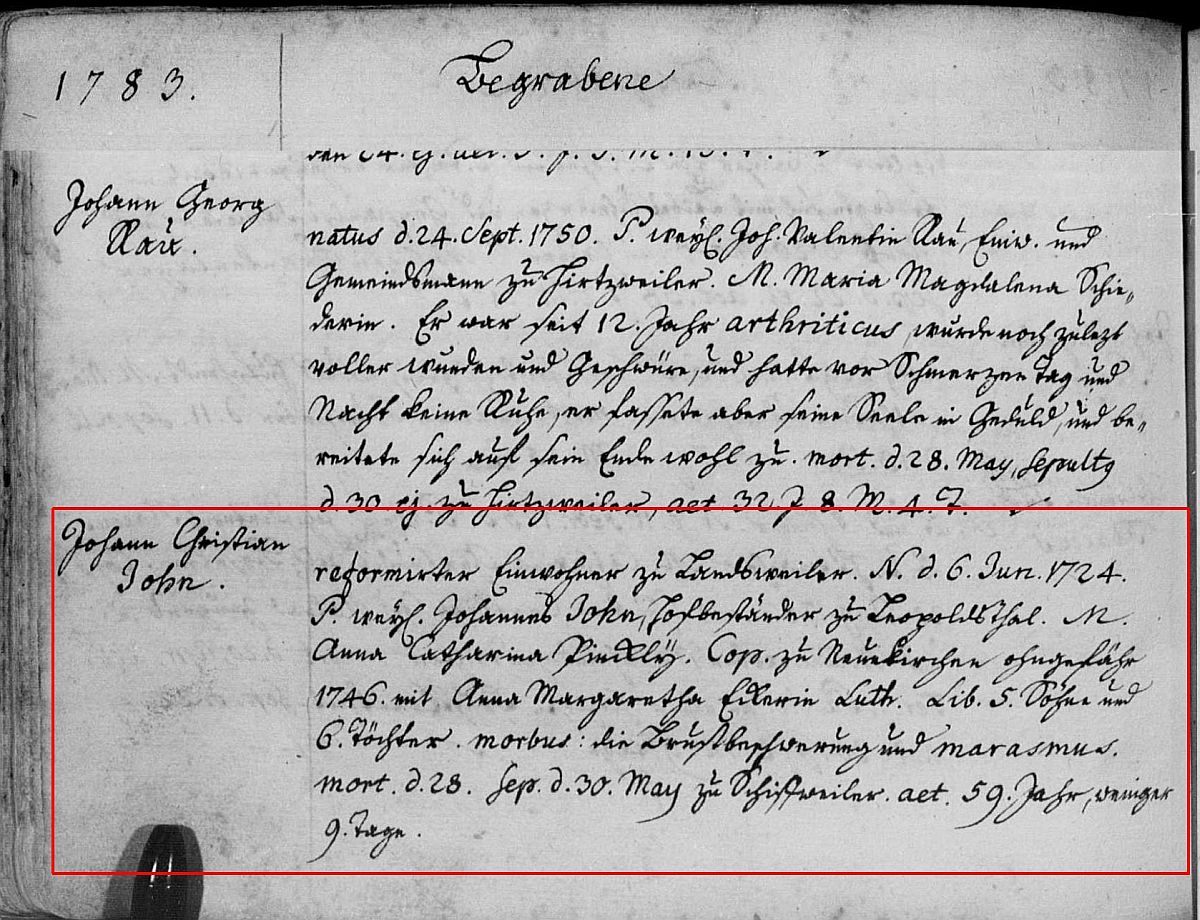 1783.
Begrabene
Johann Georg
Rau.
natus d. 24. Sept. 1750. P. weyl. Joh. Valentin Rau, Einw. und
Gemeindsmann zu Hirtzweiler. M. Maria Magdalena Schie„
derin. Er war seit 12. Jahr arthriticus, wurde noch zulezt
voller wunden und Geschwüre, und hatte vor Schmerzen Tag und
Nacht keine Ruhe, er fassete aber seine Seele in Geduld, und be„
reitete sich auf sein Ende wohl zu. mort. d. 28. May, sepultg
d. 30 ej. zu Hirtzweiler, aet 32. J 8. M. 4. T.
Johann Christian
John.
reformirter Einwohner zu Landsweiler. N. d. 6. Jun. 1724.
P. weyl. Johannes John, Hofbeständer zu Leopoldsthal. M.
Anna Catharina. Cop. zu Neuekirchen ohngefähr
1746. mit Anna Margaretha Luth. Lib. 5. Söhne und
6. Töchter. morbus: die Brustbeschwerung und marasmus.
mort. d. 28. Sep. d. 30. May zu Schiffweiler. aet. 59. Jahr, weniger
9. Tage.